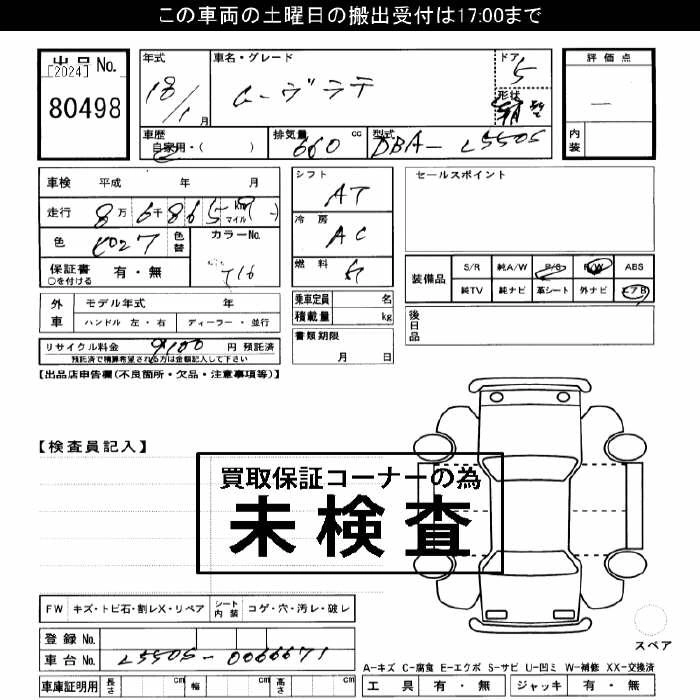 この車両の土曜日の搬出受付は17:00まで
出品 No.
[2024]
80498
年式
18/1月
車名・グレード
ムーヴラテ
ドア
5
形状
評価点
内装
車歴
自家用・( )
排気量
660 cc
型式
DBA-L550S
車検 平成 年 月
走行 8万6千865 km マイル
色
色替
カラーNo.
T16
保証書
○を付ける
有・無
シフト
AT
冷房
AC
燃料
ガ
乗車定員 名
積載量 kg
書類期限
月 日
セールスポイント
装備品
S/R 純A/W P/S P/W ABS
純TV 純ナビ 革シート 外ナビ エアB
後日品
外車
モデル年式 年
ハンドル 左・右 ディーラー・並行
リサイクル料金 9100 円 預託済
預託済で精算希望される方は金額記入して下さい
【出品店申告欄(不良箇所・欠品・注意事項等)】
【検査員記入】
買取保証コーナーの為
未検査
FW キズ・トビ石・割レX・リペア
シート内装 コゲ・穴・汚レ・破レ
登録 No.
車台 No. L550S-0066671
車庫証明用 長さ cm 幅 cm 高さ cm
スペア
A-キズ C-腐食 E-エクボ S-サビ U-凹ミ W-補修 XX-交換済
工具 有・無 ジャッキ 有・無